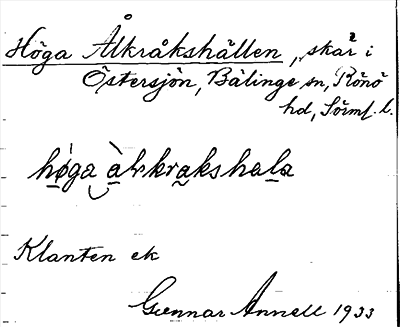 Höga Ålkråkshällen, skär i
Östersjön, Bälinge sn, Rönö
hd, Sörml. l.
höga àlvkrakshala
Klanten ek
Gunnar Annell 1933